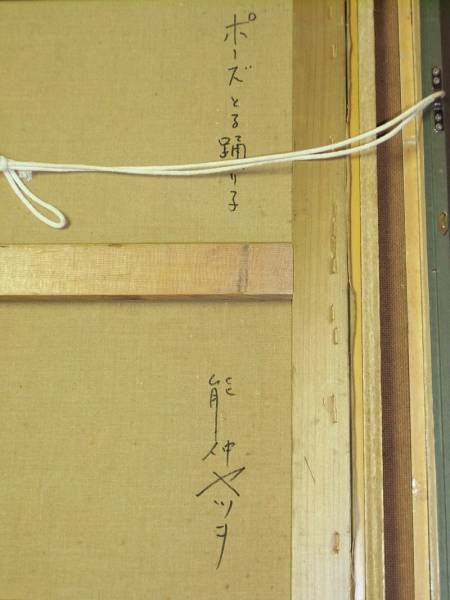 ポーズとる踊り子
能仲ヤツヲ